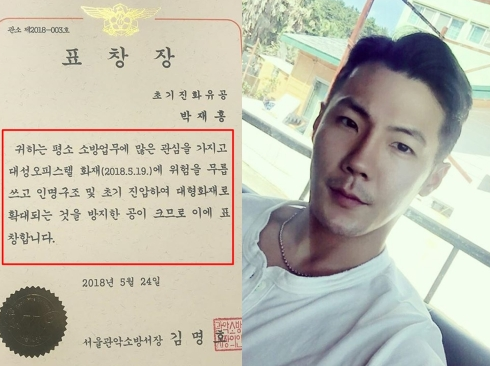 관소 제2018-003호
표 창 장
초기진화유공
박 재 홍
귀하는 평소 소방업무에 많은 관심을 가지고
대성오피스텔 화재(2018.5.19.)에 위험을 무릅
쓰고 인명구조 및 초기 진압하여 대형화재로
확대되는 것을 방지한 공이 크므로 이에 표
창합니다.
2018년 5월 24일
서울관악소방서장 김 명 호